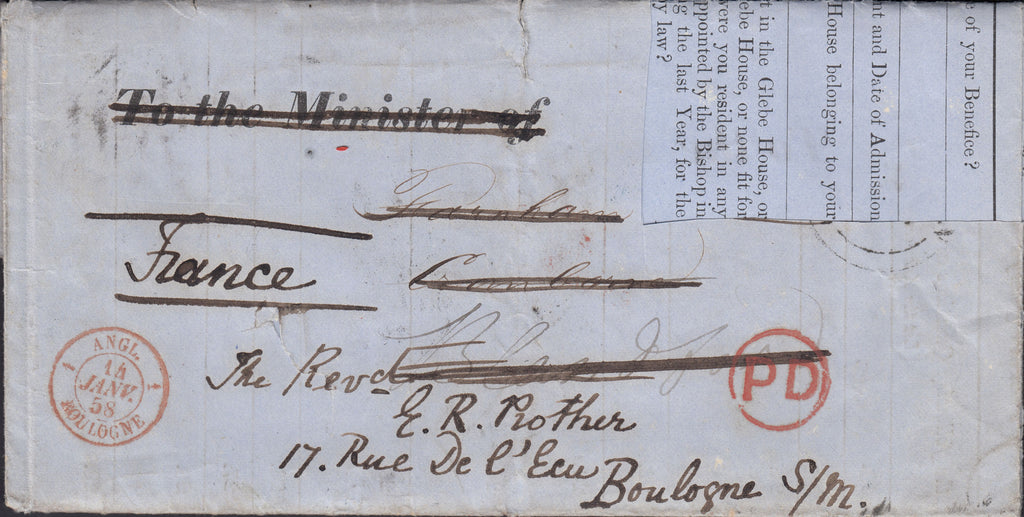 To the Minister of
Farnham
France
The Revd
E. R. Rother
17. Rue De l'Ecu
Boulogne S/M.
ANGL.
14
JANV.
58
BOULOGNE
PD
e of your Benefice?
nt and Date of Admission
House belonging to your
t in the Glebe House, or
ebe House, or none fit for
were you resident in any
ppointed by the Bishop in
g the last Year, for the
y law?